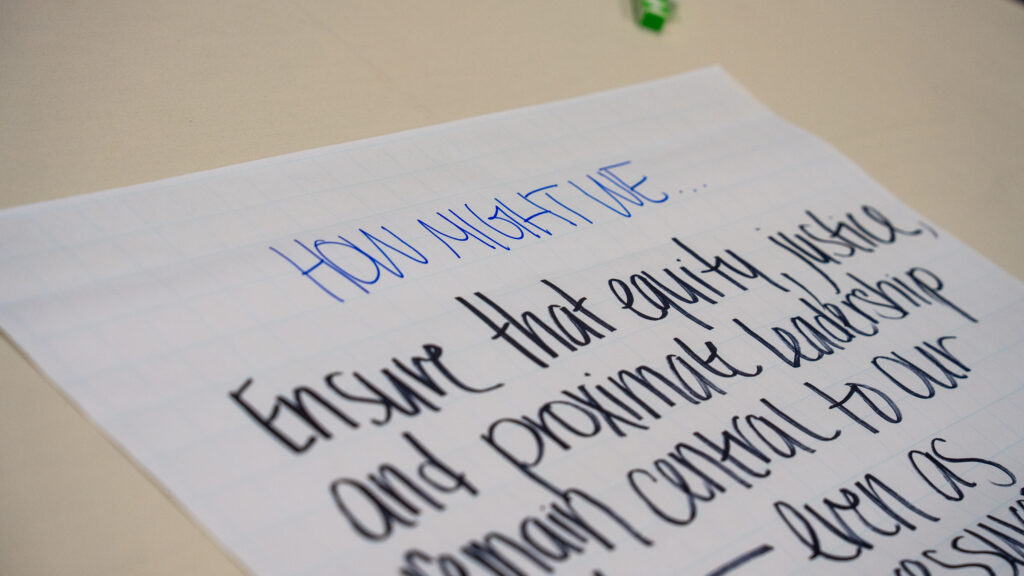 HOW MIGHT WE ...
Ensure that equity, justice,
and proximate leadership
remain central to our
— even as